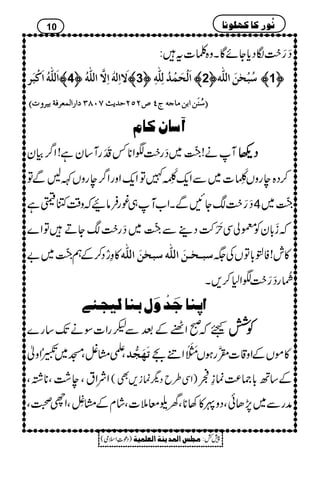 نُور کا کھلونا
10
دَرَخت لگا دیا جائے گا۔ وہ کلمات یہ ہیں:
﴿1﴾ سُبْحٰنَ اللّٰهِ ﴿2﴾ اَلْحَمْدُ لِلّٰهِ ﴿3﴾ لَآ اِلٰهَ اِلَّا اللّٰهُ ﴿4﴾ اَللّٰهُ اَكْبَرُ
(سُنَن ابن ماجه ج٤ ص٢٥٢ حديث ٣٨٠٧ دارالمعرفة بيروت)
آسان کام
دیکھا آپ نے! جنّت میں درخت لگوانا کس قَدَر آسان ہے! اگر بیان
کردہ چاروں کلِمات میں سے ایک کلِمہ کہیں تو ایک اور اگر چاروں کہہ لیں گے تو
جنّت میں 4 دَرَخت لگ جائیں گے۔ اب آپ ہی غور فرمائیے کہ وقت کتنا قیمتی ہے
کہ زَبان کو معمولی سی حَرَکت دینے سے جنّت میں دَرَخت لگ جاتے ہیں تو اے
کاش! فالتو باتوں کی جگہ سبحٰنَ اللّٰه سبحٰنَ اللّٰه کا وِرْد کرکے ہم جنّت میں بے
شمار دَرَخت لگوا لیا کریں۔
اپنا جَدْوَل بنا لیجئے
کوشش کیجئے کہ صبح اٹھنے کے بعد سے لے کر رات سونے تک سارے
کاموں کے اوقات مقرّر ہوں مَثَلًا اتنے بجے تَہَجُّد، علمی مشاغل، مسجد میں تکبیرِ اُولیٰ
کے ساتھ باجماعت نمازِ فَجْر (اسی طرح دیگر نمازیں بھی) اشراق، چاشت، ناشتہ،
مدرسے میں پڑھائی، دوپہر کا کھانا، گھریلو معاملات، شام کے مشاغل، اچھی صحبت،
پیش کش: مجلس المدینة العلمية (دعوتِ اسلامی)